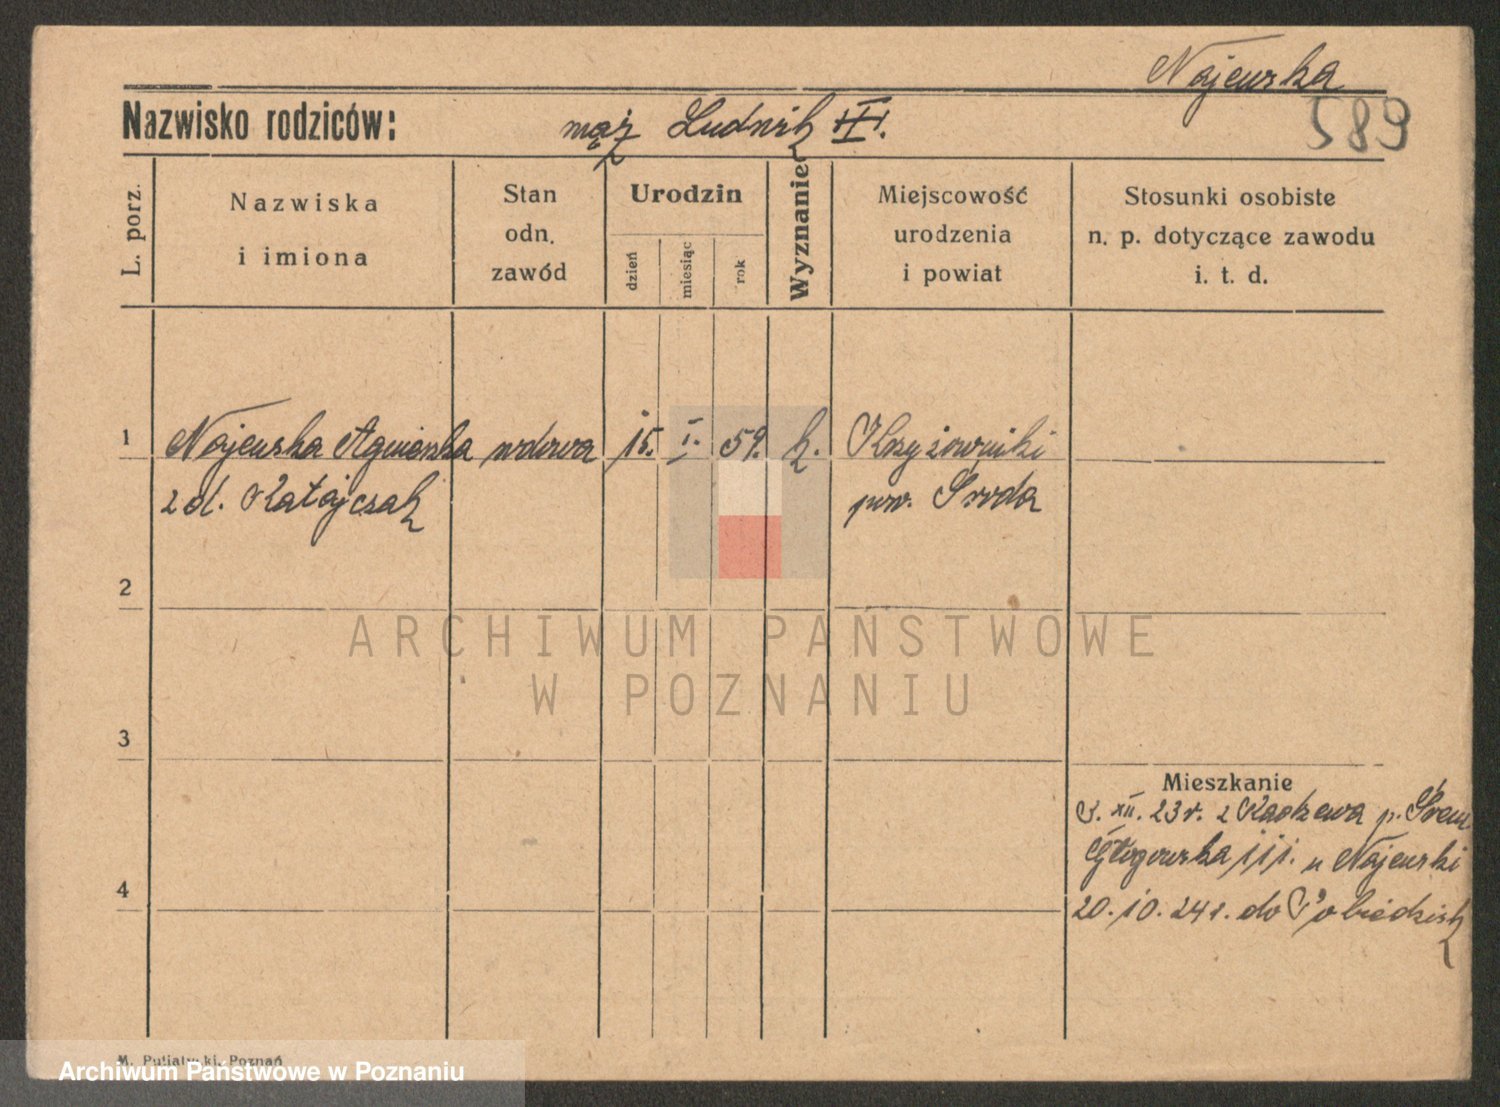 Najewska
589
Nazwisko rodziców: mąż Ludwik III.
L. porz.
Nazwiska
i imiona
Stan
odn.
zawód
Urodzin
dzień
miesiąc
rok
Wyznanie
Miejscowość
urodzenia
i powiat
Stosunki osobiste
n. p. dotyczące zawodu
i. t. d.
1 Najewska Agnieszka wdowa 15. I. 59. k. Krzyżowniki
z d. Ratajczak pow. Środa
2
3
4
Mieszkanie
XII. 23 r. z p. Śrem
Głogowska 111. u Najewski
20. 10. 24 r. do Pobiedzisk
M. Putiatycki, Poznań
ARCHIWUM PAŃSTWOWE
W POZNANIU
Archiwum Państwowe w Poznaniu